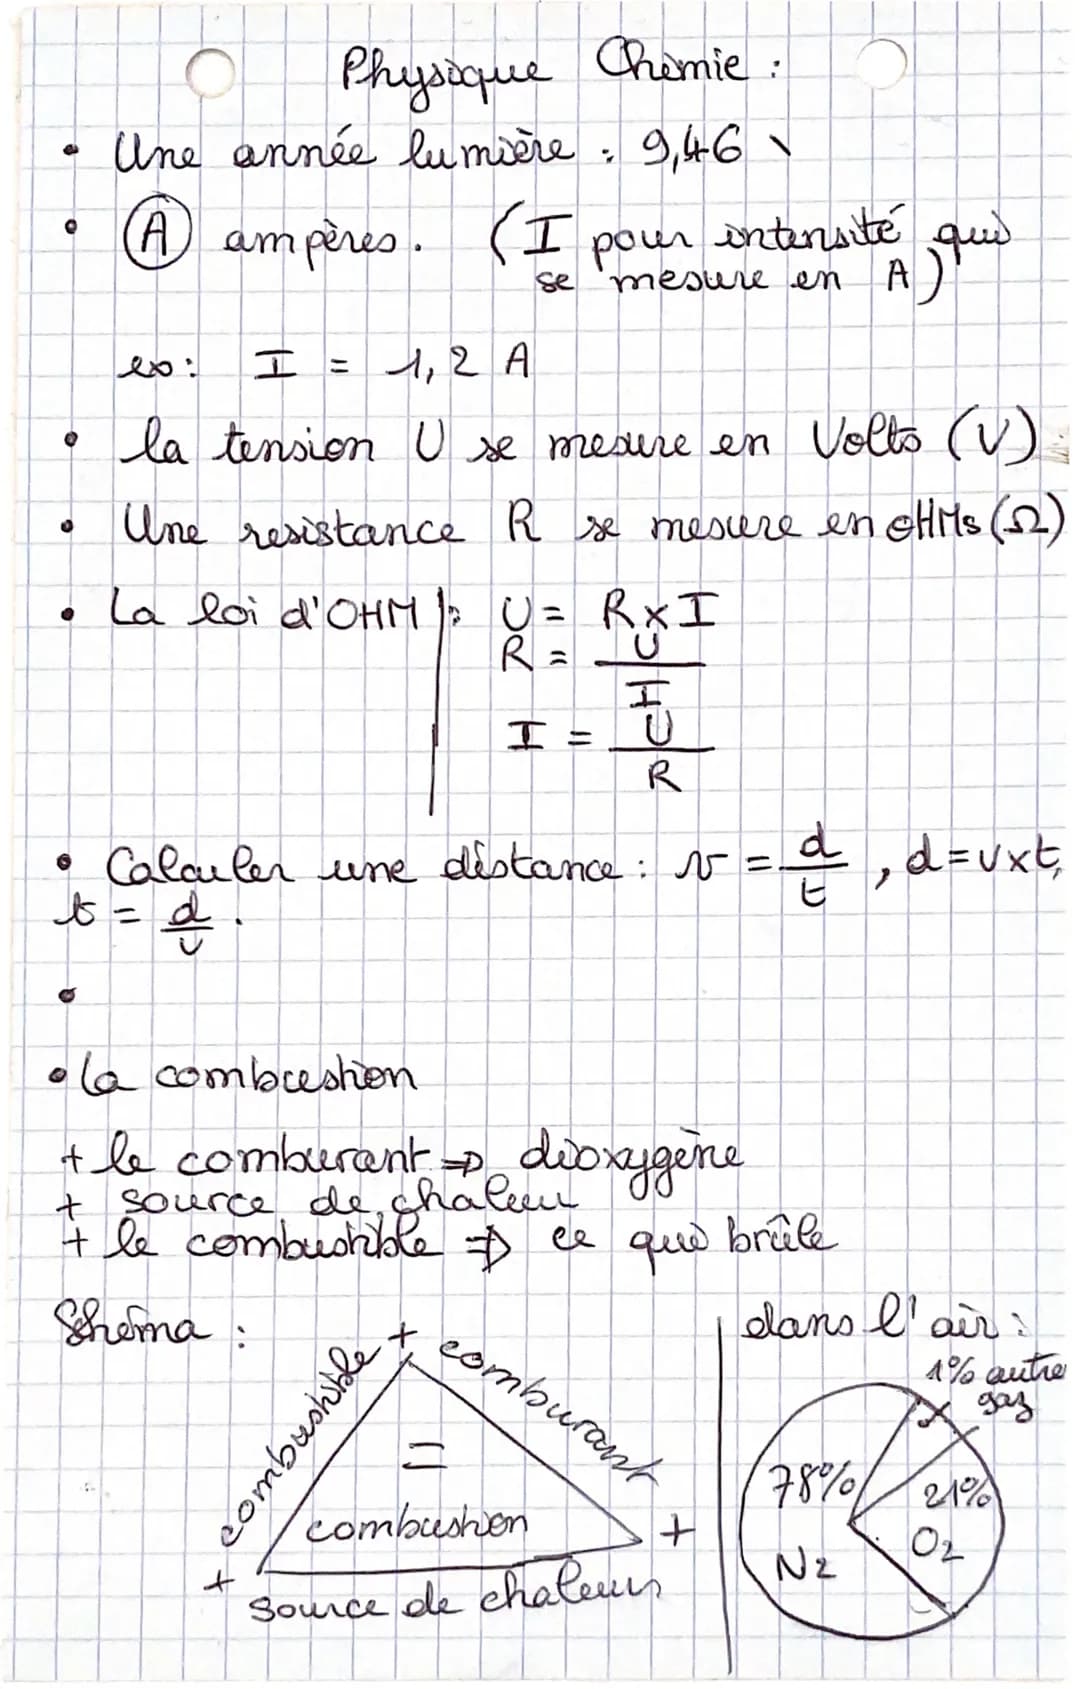 Physique Chimie :
• Une année lumière : 9,46 \
• Ⓐ ampères. (I pour intensité qui
se mesure en A)
ex: I = 1,2 A
• la tension U se mesure en Volts (V)
• Une resistance R se mesure en OHMs (Ω)
• La loi d'OHM : U = R x I
R = U/I
I = U/R
• Calculer une distance : v = d/t , d = v x t,
t = d/v .
•
• la combustion
+ le comburant ⇒ dioxygène
+ source de chaleur
+ le combustible ⇒ ce qui brûle
Shéma :
+
combustible
comburant
=
combustion
+
+
source de chaleur
dans l'air :
1% autre
gaz
78%
N2
21%
O2